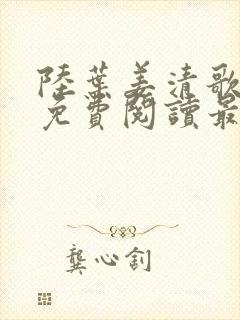 陸葉姜清歌
免費閱讀最
龔心釗